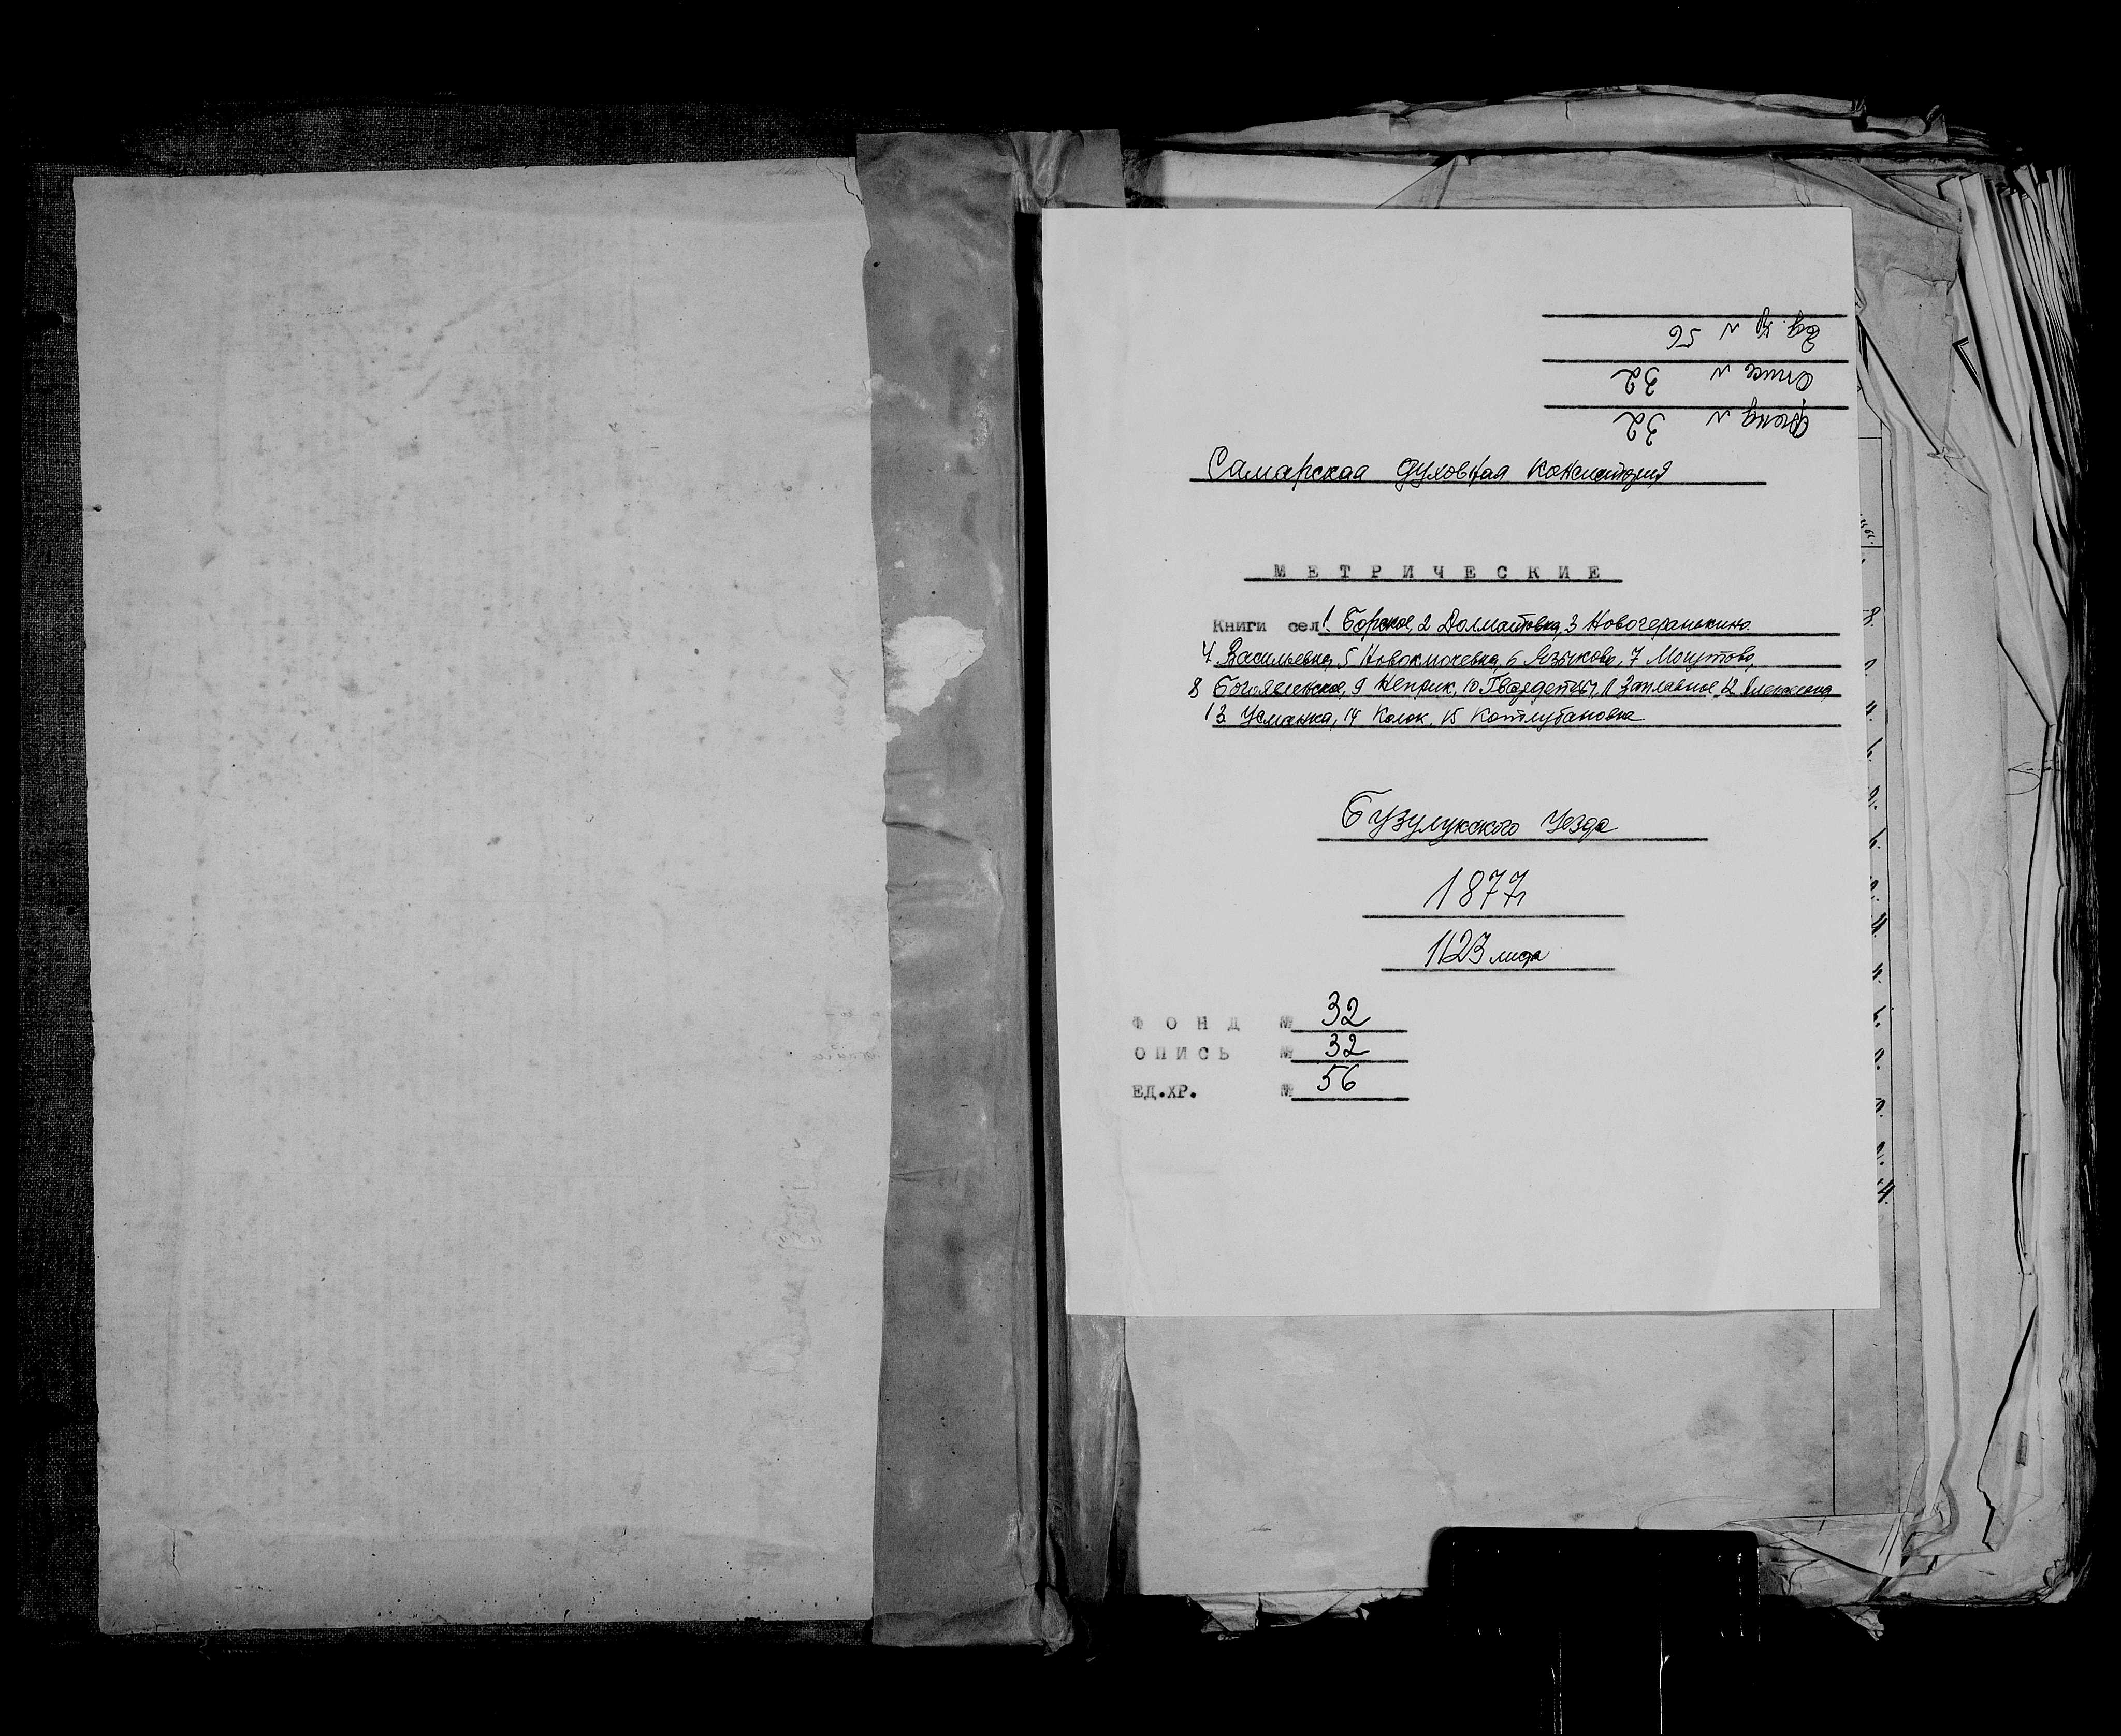 Ед. хр N 56
Опись N 32
Фонд N 32
Самарская духовная консистория
МЕТРИЧЕСКИЕ
Книги сел 1. Борское, 2 Долматовка, 3 Новогеранькино
4. Васильевка, 5 Новоключевка, 6 Языково, 7 Могутово,
8 Богоявленское, 9 Неприк, 10 Гвардейцы, 11 Заплавное, 12 Алексеевка,
13. Усманка, 14 Колок, 15 Котлубановка
Бузулукского Уезда
1877г
1123 листа
ФОНД № 32
ОПИСЬ № 32
ЕД.ХР. № 56